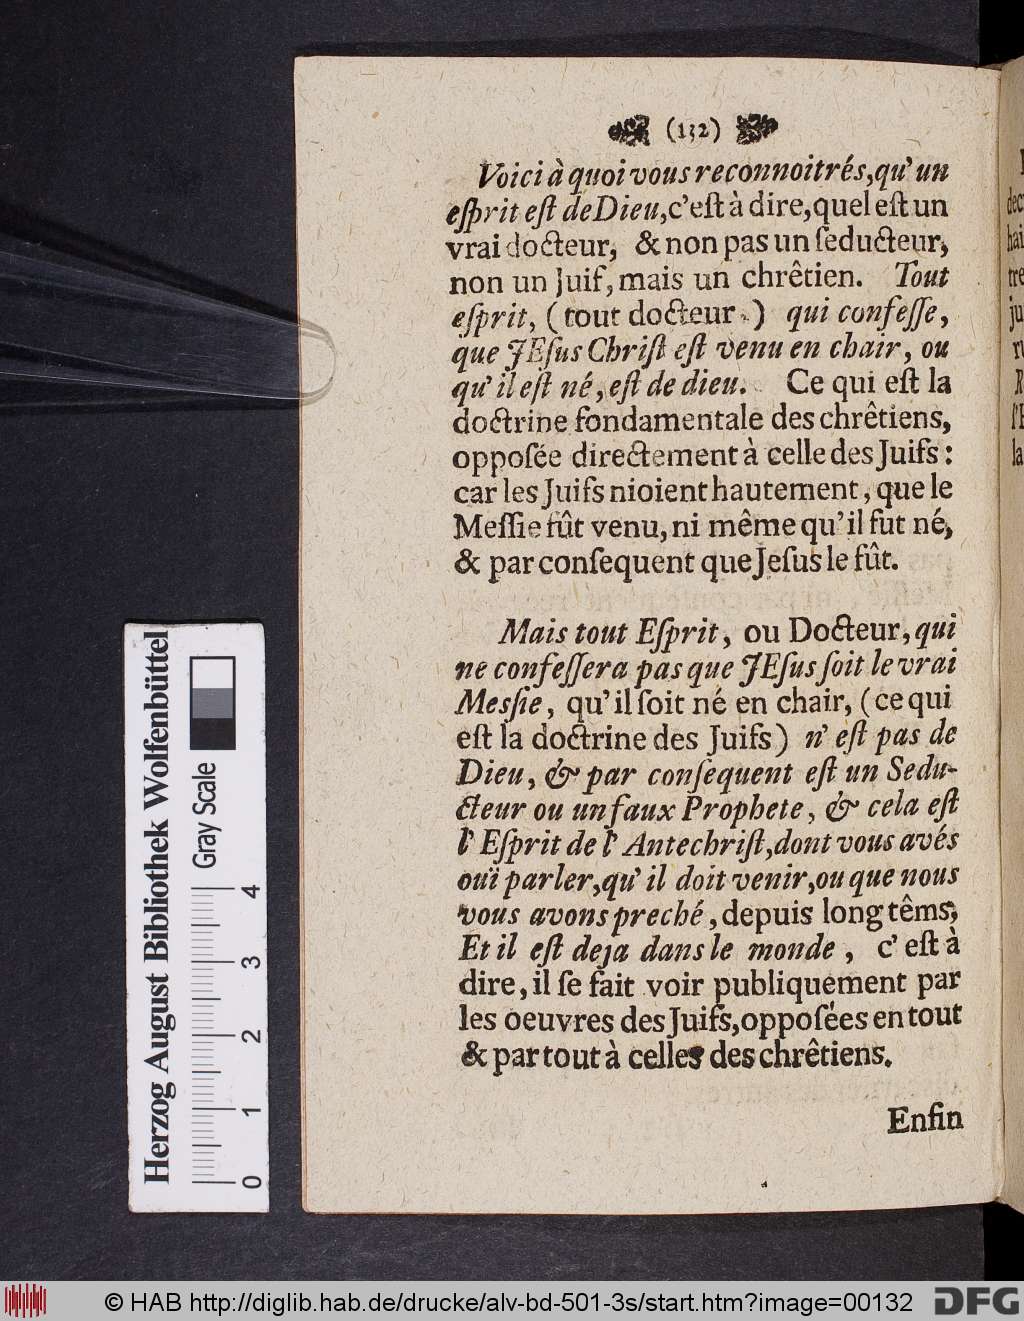 (132)
Voici à quoi vous reconnoitrés, qu' un
eſprit eſt de Dieu, c'eſt à dire, quel eſt un
vrai docteur, & non pas un ſeducteur,
non un Juif, mais un chrêtien. Tout
eſprit, (tout docteur.) qui confeſſe,
que JEſus Chriſt eſt venu en chair, ou
qu' il eſt né, eſt de dieu. Ce qui eſt la
doctrine fondamentale des chrêtiens,
oppoſée directement à celle des Juifs:
car les Juifs nioient hautement, que le
Meſſie fût venu, ni même qu' il fut né,
& par conſequent que Jeſus le fût.
Mais tout Eſprit, ou Docteur, qui
ne confeſſera pas que JEſus ſoit le vrai
Mesſie, qu' il ſoit né en chair, (ce qui
eſt la doctrine des Juifs) n' eſt pas de
Dieu, & par conſequent eſt un Sedu-
cteur ou un faux Prophete, & cela eſt
l' Eſprit de l' Antechriſt, dont vous avés
ouï parler, qu' il doit venir, ou que nous
vous avons preché, depuis long têms,
Et il eſt deja dans le monde, c' eſt à
dire, il ſe fait voir publiquement par
les oeuvres des Juifs, oppoſées en tout
& par tout à celles des chrêtiens.
Enfin
Herzog August Bibliothek Wolfenbüttel
Gray Scale
0 1 2 3 4
© HAB http://diglib.hab.de/drucke/alv-bd-501-3s/start.htm?image=00132
DFG